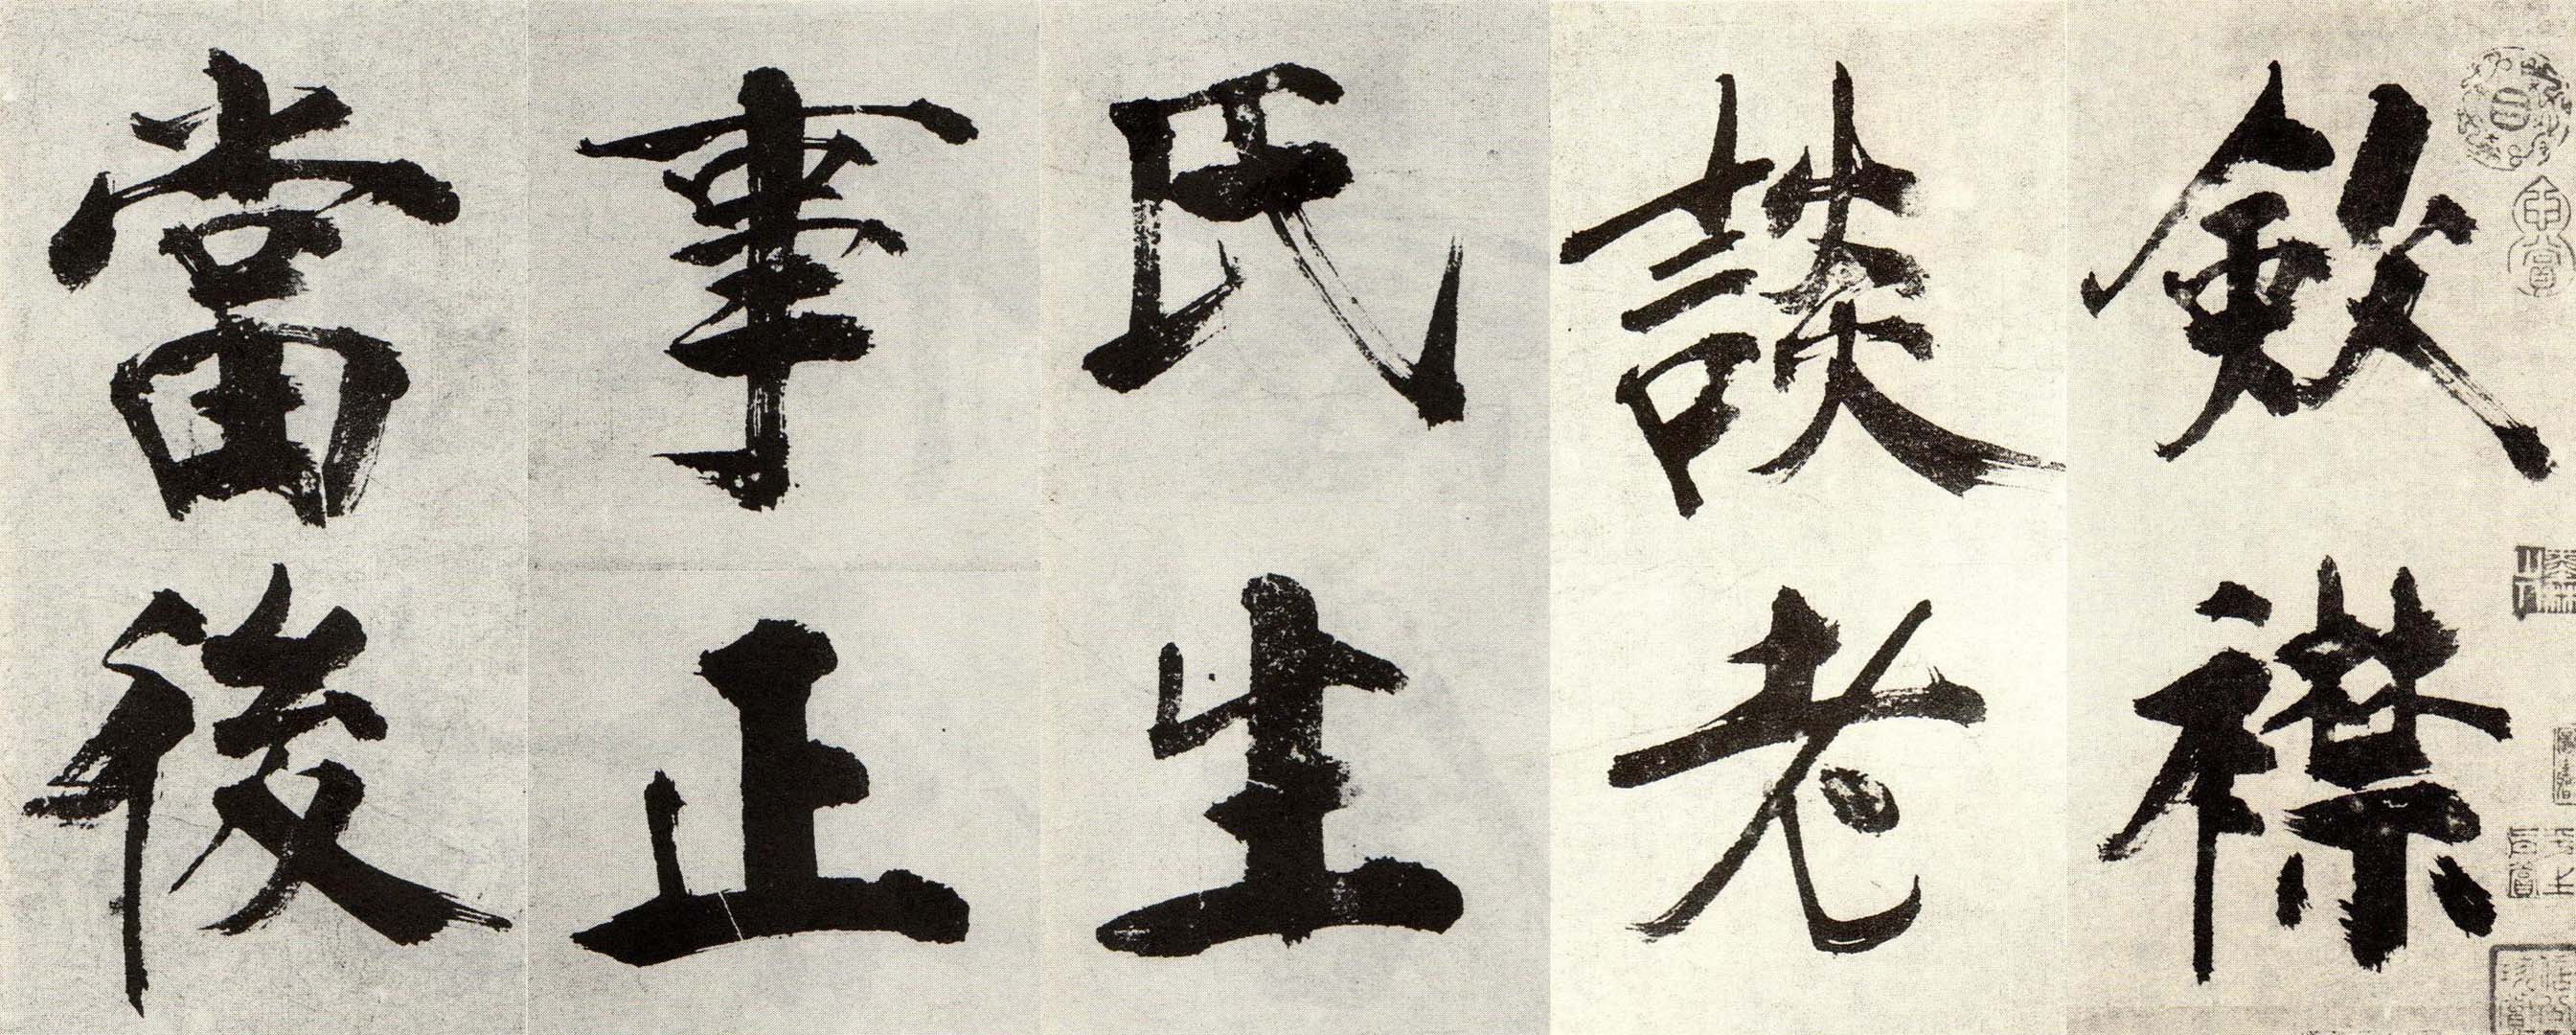 斂襟
談老
氏生
事止
當後